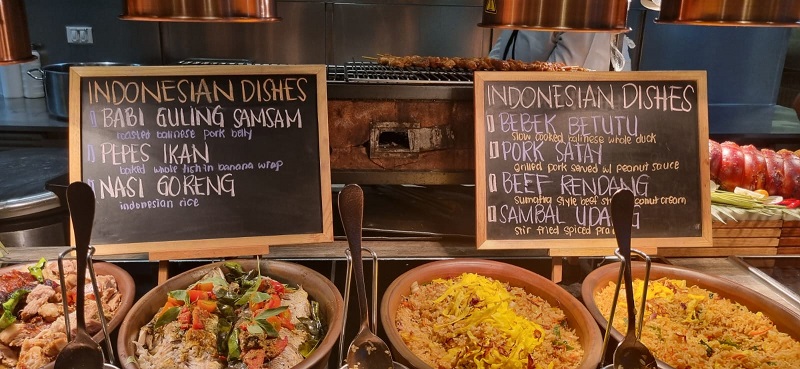 INDONESIAN DISHES
BABI GULING SAMSAM
roasted balinese pork belly
PEPES IKAN
baked whole fish in banana wrap
NASI GORENG
indonesian rice
INDONESIAN DISHES
BEBEK BETUTU
slow cooked balinese whole duck
PORK SATAY
grilled pork served w/ peanut sauce
BEEF RENDANG
sumatra style beef coconut cream
SAMBAL
stir fried spiced